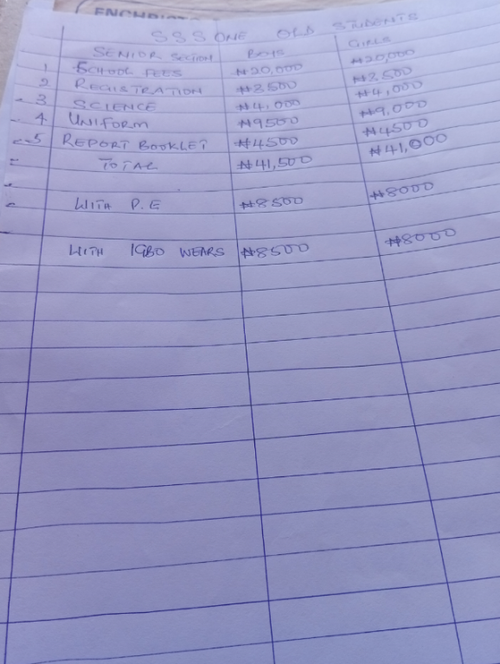 SSS ONE OLD STUDENTS
SENIOR SECTION BOYS GIRLS
1 SCHOOL FEES ₦20,000 ₦20,000
2 REGISTRATION ₦3,500 ₦3,500
3 SCIENCE ₦4,000 ₦4,000
4 UNIFORM ₦9500 ₦9,000
5 REPORT BOOKLET ₦4500 ₦4500
TOTAL ₦41,500 ₦41,000
WITH P.E ₦8500 ₦8000
WITH IGBO WEARS ₦8500 ₦8000